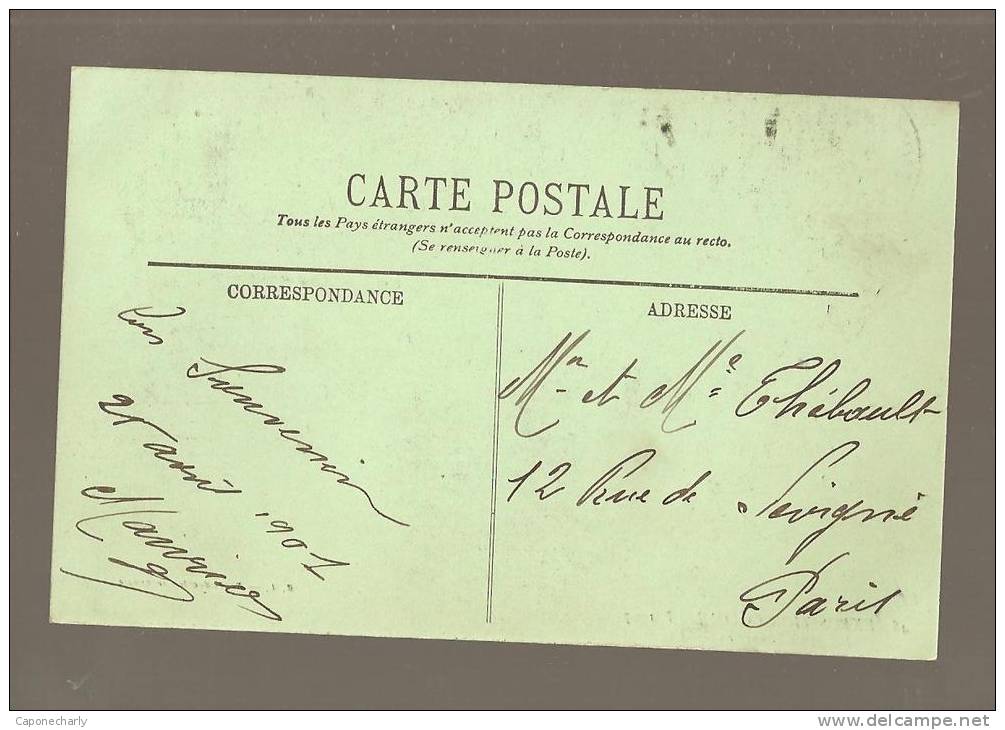 CARTE POSTALE
Tous les Pays étrangers n'acceptent pas la Correspondance au recto.
(Se renseigner à la Poste).
CORRESPONDANCE
Souvenir
avril 1907
Maurice
ADRESSE
Mr et Me Thébault
12 Rue de Sévigné
Paris
Caponecharly
www.delcampe.net